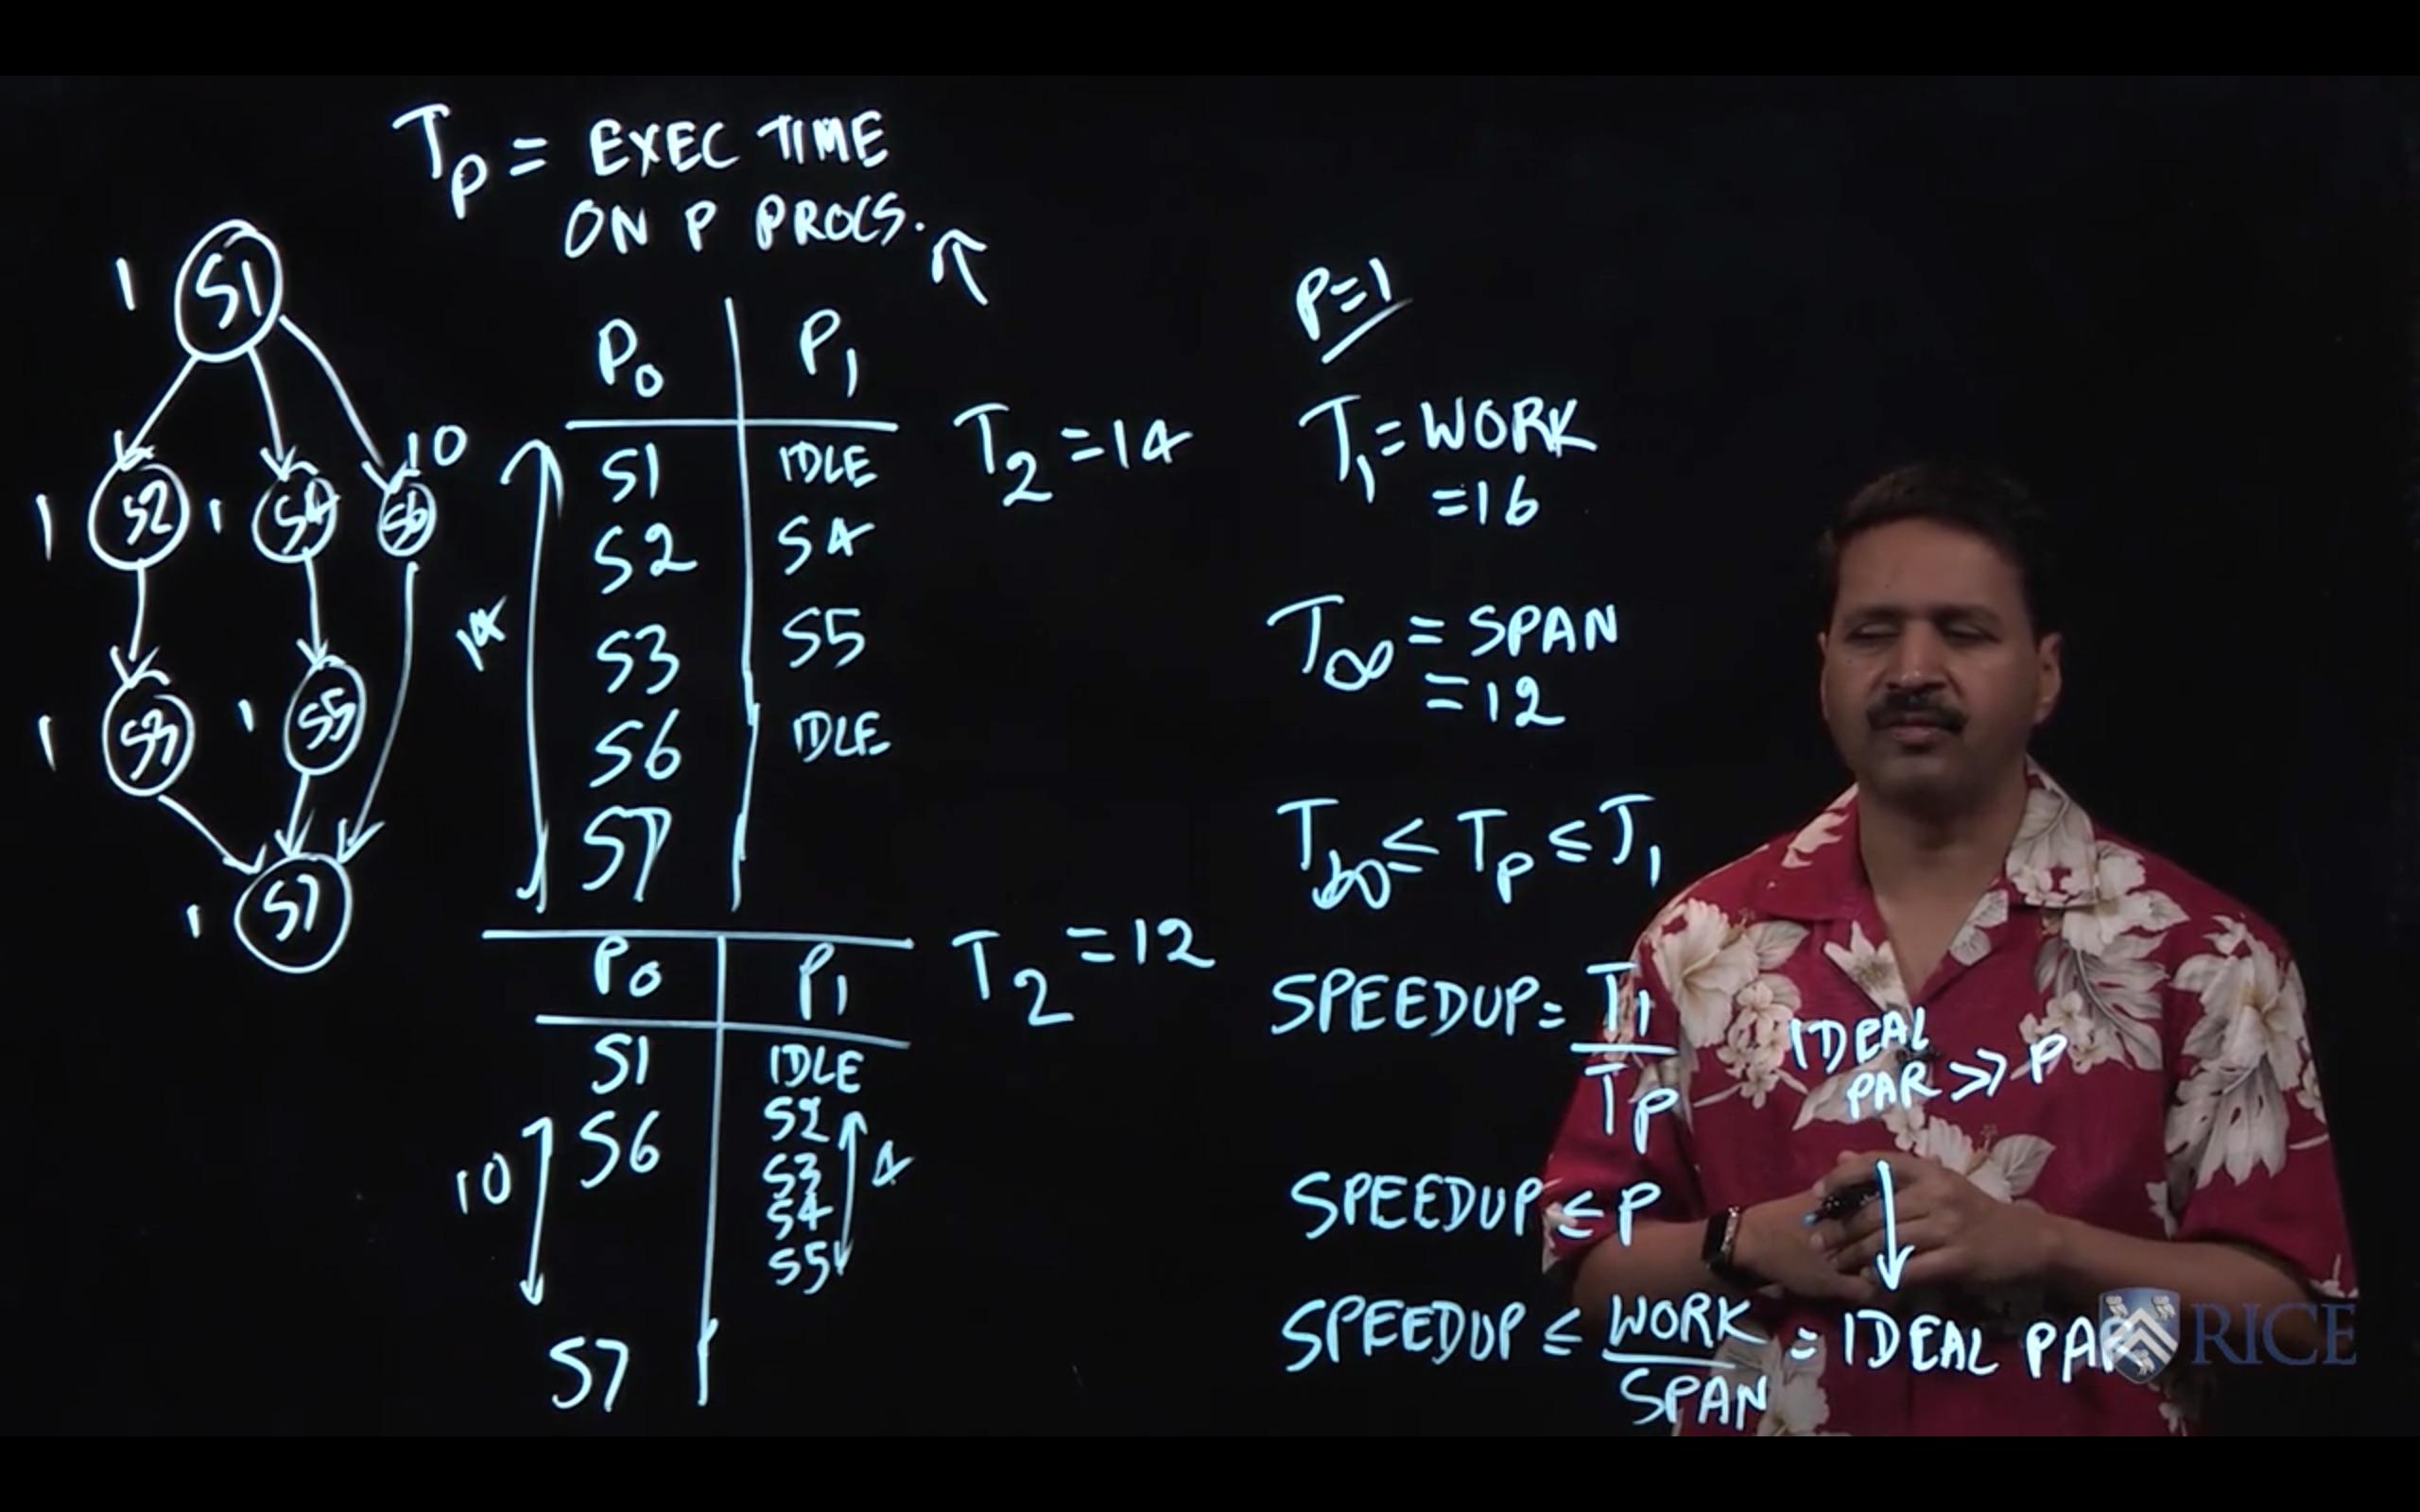 Tp = EXEC TIME
ON P PROCS.
1 S1
10
1 S2 1 S4 S6
1 S3 1 S5
1 S7
P0 P1
S1 IDLE
S2 S4
S3 S5
S6 IDLE
S7
14
T2 = 14
P0 P1
S1 IDLE
S6 S2
S3
S4
S5
S7
10
4
T2 = 12
P=1
T1 = WORK
= 16
T∞ = SPAN
= 12
T∞ ≤ Tp ≤ T1
SPEEDUP = T1
Tp
IDEAL
PAR >> P
SPEEDUP ≤ P
SPEEDUP ≤ WORK = IDEAL PAR
SPAN
RICE